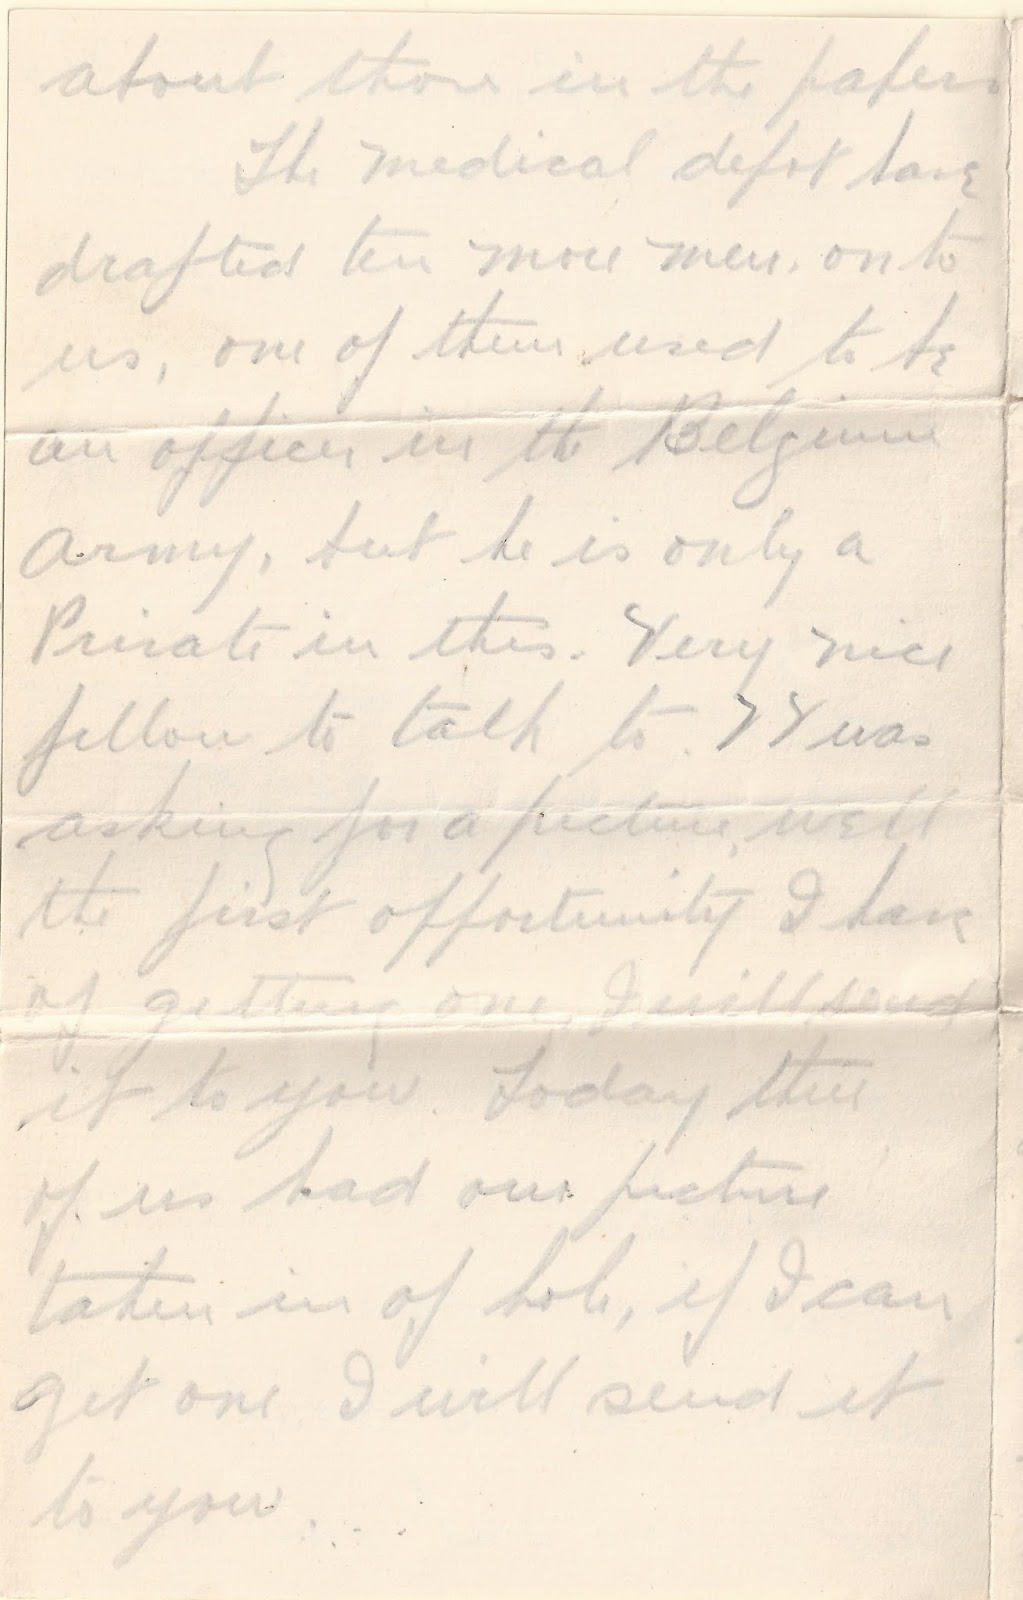 about those in the papers
The medical depot have
drafted ten more men. on to
us, one of them used to be
an officer in the Belgium
Army, but he is only a
Private in this. Very nice
fellow to talk to. YY was
asking for a picture, well
the first opportunity I have
of getting one, I will send
it to you. Today three
of us had our picture
taken in of hole, if I can
get one I will send it
to you.